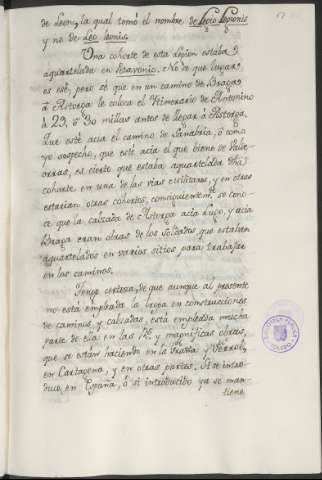 de Leon, la qual tomó el nombre de Legio Legionis
y no de Leo leonis.
Una cohorte de esta legion estaba
aquartelada en Petavonio. No se que lugar
es esté, pero sé que en un camino de Braga
à Astorga le coloca el Itinerario de Antonino
à 29, ò 30 millas antes de llegar à Astorga.
Que esté acia el camino de Sanabria, ò como
yo sospecho, que esté acia el que biene de Valde-
orras, es cierto que estaba aquartelada dha
cohorte en una de las vias militares, y en otras
estarian otras cohortes, consiguientemte se cono-
ce que la calzada de Astorga acia Lugo, y acia
Braga eran obras de los Soldados que estaban
aquartelados en varios sitios para trabajar
en los caminos.
Tengo certeza, de que aunque al presente
no está empleada la tropa en construcciones
de caminos y calzadas, está empleada mucha
parte de ella en las Rs. y magnificas obras,
que se están haciendo en la Graña y Ferrol,
en Cartagena, y en otras partes. Si se intro-
duce en España, ò si introducido ya se man-
tiene